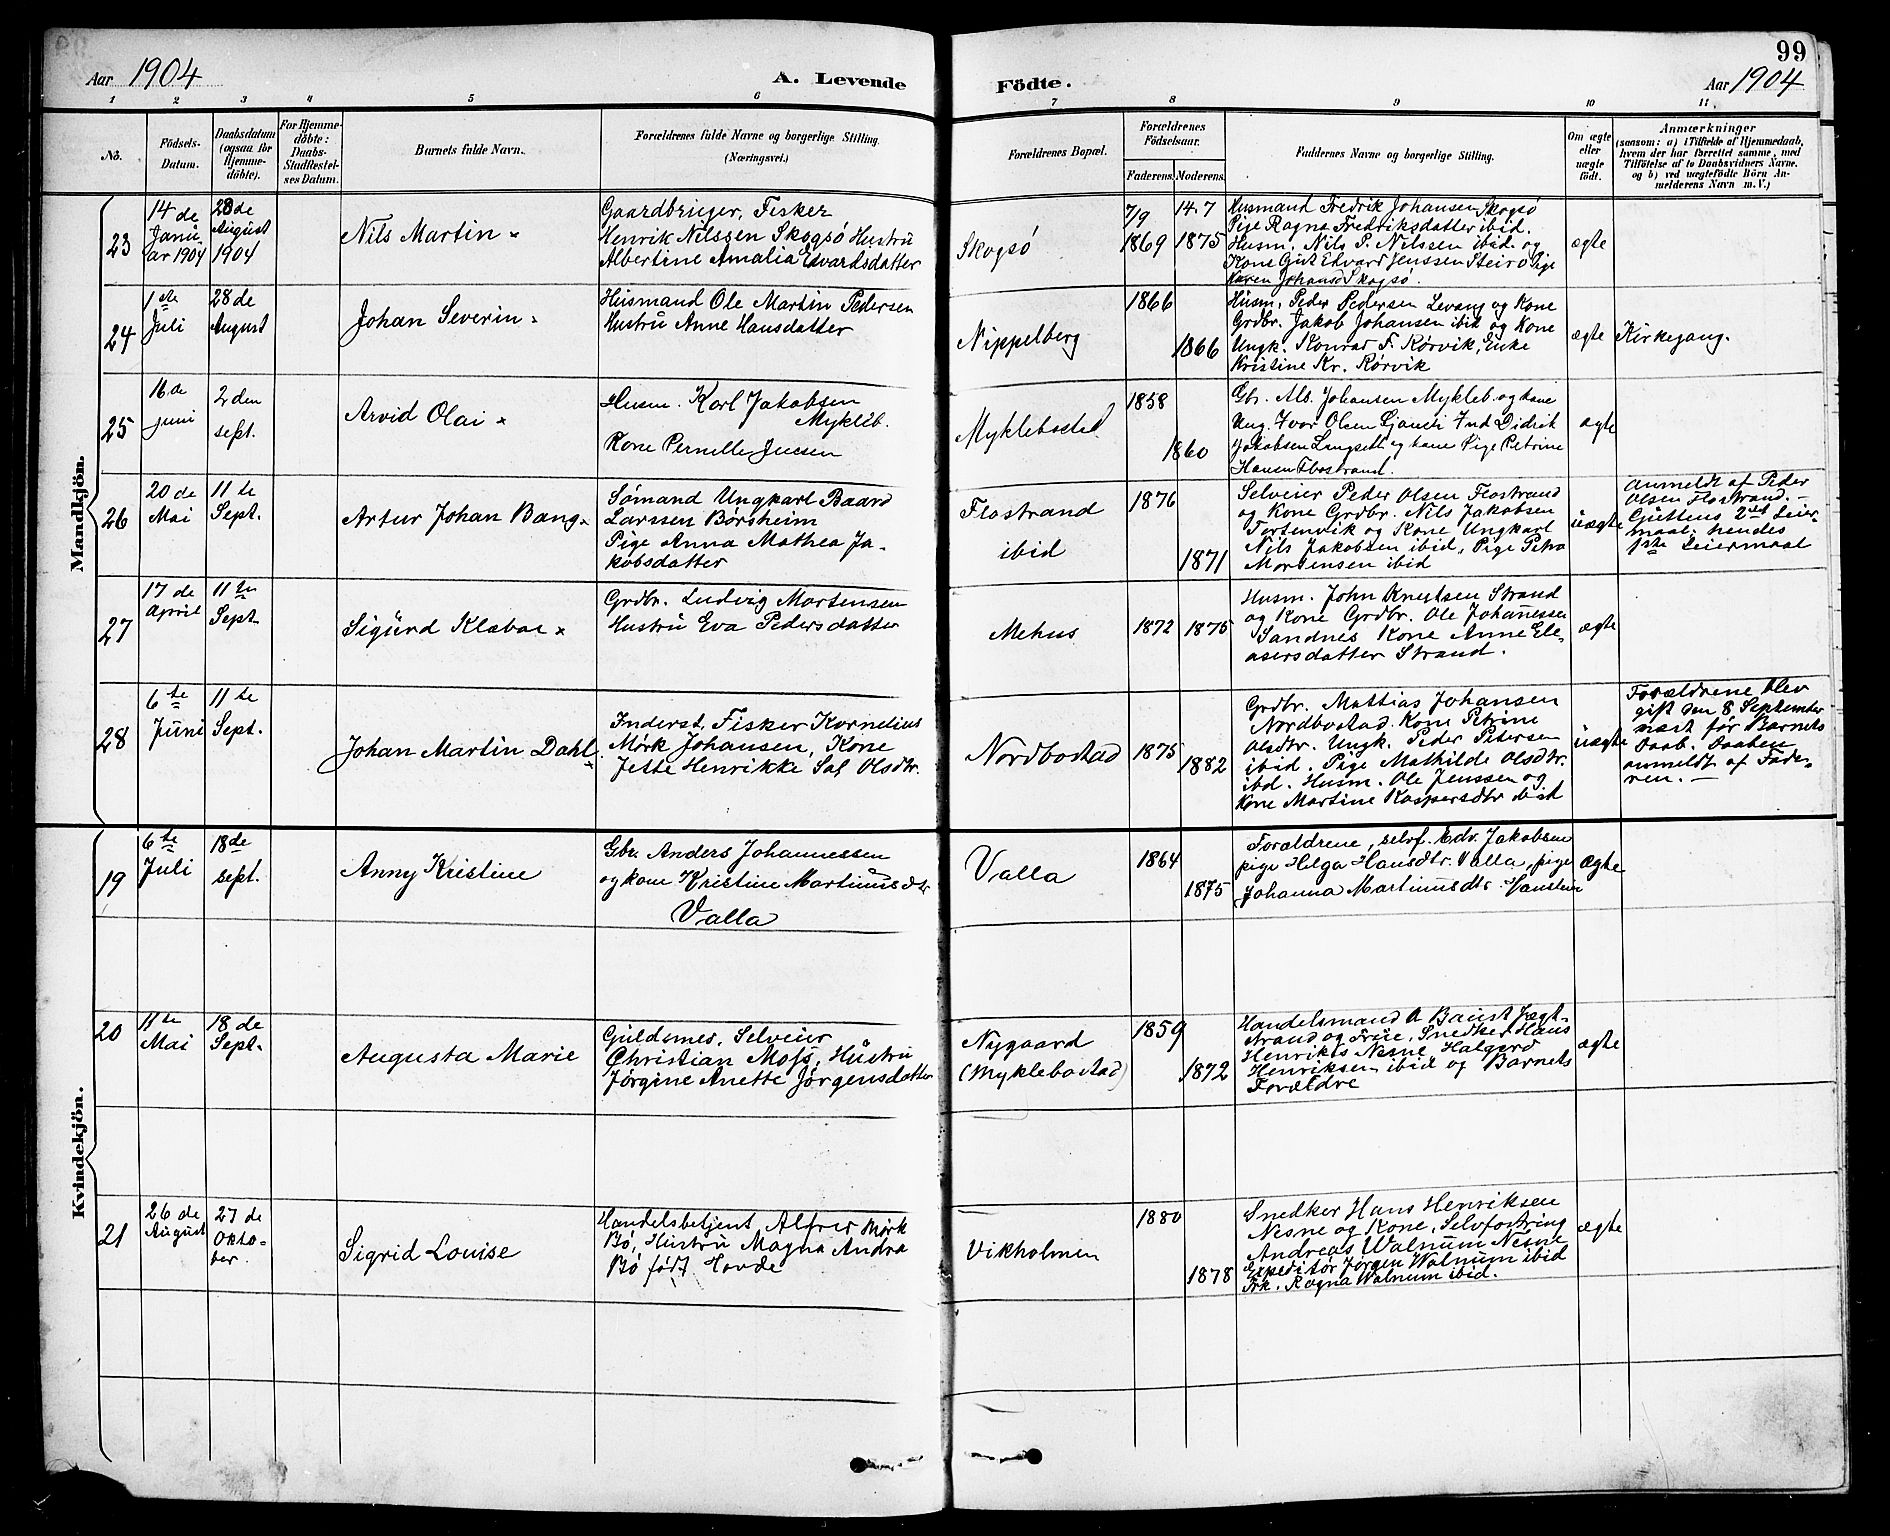 99
Aar 1904
A. Levende Födte.
Aar 1904
1 2 3 4 5 6 7 8 9 10 11.
No.
Födsels-
Datum.
Daabsdatum
(ogsaa for
Hjemme-
döbte).
For Hjemme-
döbte:
Daabs-
Stadfestel-
ses Datum.
Barnets fulde Navn.
Forældrenes fulde Navne og borgerlige Stilling.
(Næringsvei.)
Forældrenes Bopæl.
Forældrenes
Födselsaar.
Faderens. Moderens.
Faddernes Navne og borgerlige Stilling.
Om ægte
eller
uægte
födt.
Anmærkninger
(saasom: a) i Tilfælde af Hjemmedaab,
hvem der har forrettet samme, med
Tilföielse af to Daabsvidners Navne.
og b) ved uægtefödte Börn An-
melderens Navn m. V.)
Mandkjön.
23
14 de
Janu-
ar 1904
28 de
August
1904
Nils Martin
Gaardbruger, Fisker
Henrik Nilssen Skogsö Hustru
Albertine Amalia Edvardsdatter
Skogsö
7/9
1869
14.7
1875
Husmand Fredrik Johansen Skogsö
Pige Ragna Fredriksdatter ibid.
Husm. Nils P. Nilssen ibid og
Kone Gut Edvard Jenssen Steiro Pige
Karen Johansd Skogsö.
ægte
24
1ste
Juli
28 de
August
Johan Severin
Husmand Ole Martin Pedersen
Hustru Anne Hansdatter
Nippelberg
1866
1866
Husm. Peder Pedersen Levang og Kone
Grdbr. Jakob Johansen ibid og Kone
Ungk. Konrad F. Rörvik, Enke
Kristine Kr. Rörvik
ægte
Kirkegang.
25
16 de
juni
2 den
sept.
Arvid Olai
Husm. Karl Jakobsen
Mykleb.
Kone Pernelle Jensen
Myklebostad
1858
1860
Gbr. Als. Johansen Mykleb. og kone
Ung. Ivar Olsen Ind Didrik
Jakobsen Langseth og kone Pige Petrine
Hansen Flostrand.
ægte
26
20 de
Mai
11 te
Sept.
Artur Johan Bang
Sömand Ungkarl Baard
Larssen Börsheim
Pige Anna Mathea Ja-
kobsdatter
Flostrand
ibid
1876
1871
Selveier Peder Olsen Flostrand
og Kone Grdbr. Nils Jakobsen
Fortenvik og Kone Ungkarl
Nils Jakobsen ibid, Pige Petra
Mortensen ibid
uægte
Anmeldt af Peder
Olsen Flostrand. –
Guttens 2det Leier-
maal, hendes
1ste Leiermaal
27
17 de
April
11 te
Sept.
Sigurd Klæboe
Grdbr. Ludvig Mortensen
Hustru Eva Pedersdatter
Mehus
1872
1875
Husm. John Knutsen Strand
og Kone Grdbr. Ole Johannessen
Sandnes Kone Anne Ele-
asersdatter Strand.
ægte
28
6 te
Juni
11 te
Sept.
Johan Martin Dahl
Inderst, Fisker Kornelius
Mörk Johansen, Kone
Jette Henrikke Sal Olsdtr.
Nordbostad
1875
1882
Grdbr. Mattias Johansen
Nordbostad. Kone Petrine
Olsdtr. Ungk. Peder Petersen
ibid. Pige Mathilde Olsdtr.
ibd. Husm. Ole Jenssen og
Kone Martine Kaspersdtr ibid
uægte
Forældrene blev
gift den 8 September
næst för Barnets
Daab. Daaben
anmeldt af Fade-
ren. –
Kvindekjön.
19
6 te
Juli
18 de
sept.
Anny Kristine
Gbr. Anders Johannessen
og kone Kristine Martinusdtr
Valla
Valla
1864
1875
Forældrene, selvf. Edv. Jakobsen
pige Helga Hansdtr. Valla, pige
Johanna Martinusdtr.
ægte
20
11 te
Mai
18 de
Sept.
Augusta Marie
Guldsmed, Selveier
Christian Moss, Hustru
Jörgine Anette Jörgensdatter
Nygaard
(Myklebostad)
1859
1872
Handelsmand A Baust Jægt-
strand og Frue, Snedker Hans
Henriks Nesne, Halgerd
Henriksen ibid og Barnets
Forældre
ægte
21
26 de
August
27 de
Okto-
ber.
Sigrid Louise
Handelsbetjent, Alfred Mörk
Bö, Hustru Magna Andra
Bö födt Hovde
Vikholmen
1880
1878
Snedker Hans Henriksen
Nesne og Kone, Selvfostring
Andreas Walnum Nesne
Expeditör Jörgen Walnum ibid
Frk. Ragna Walnum ibid.
ægte